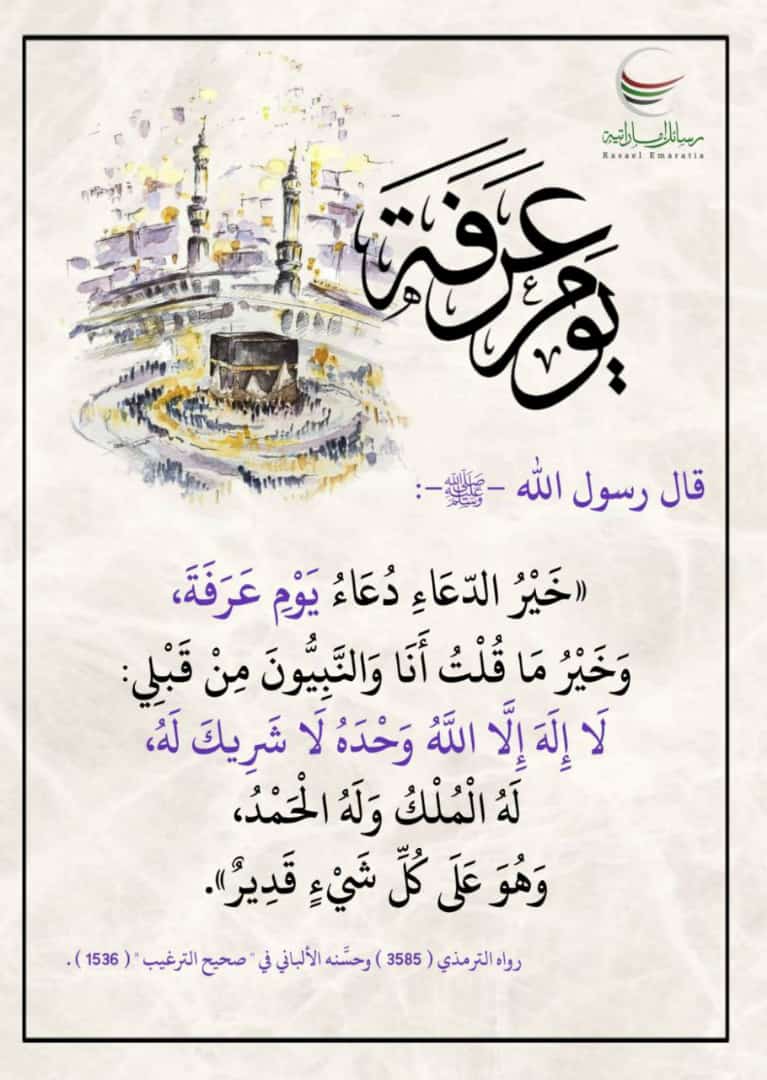 رسائل إماراتية
Rasael Emaratia
يوم عرفة
قال رسول الله -ﷺ-:
«خَيْرُ الدّعَاءِ دُعَاءُ يَوْمِ عَرَفَةَ،
وَخَيْرُ مَا قُلْتُ أَنَا وَالنَّبِيُّونَ مِنْ قَبْلِي:
لَا إِلَهَ إِلَّا اللَّهُ وَحْدَهُ لَا شَرِيكَ لَهُ،
لَهُ الْمُلْكُ وَلَهُ الْحَمْدُ،
وَهُوَ عَلَى كُلِّ شَيْءٍ قَدِيرٌ».
رواه الترمذي ( 3585 ) وحسَّنه الألباني في " صحيح الترغيب " ( 1536 ) .